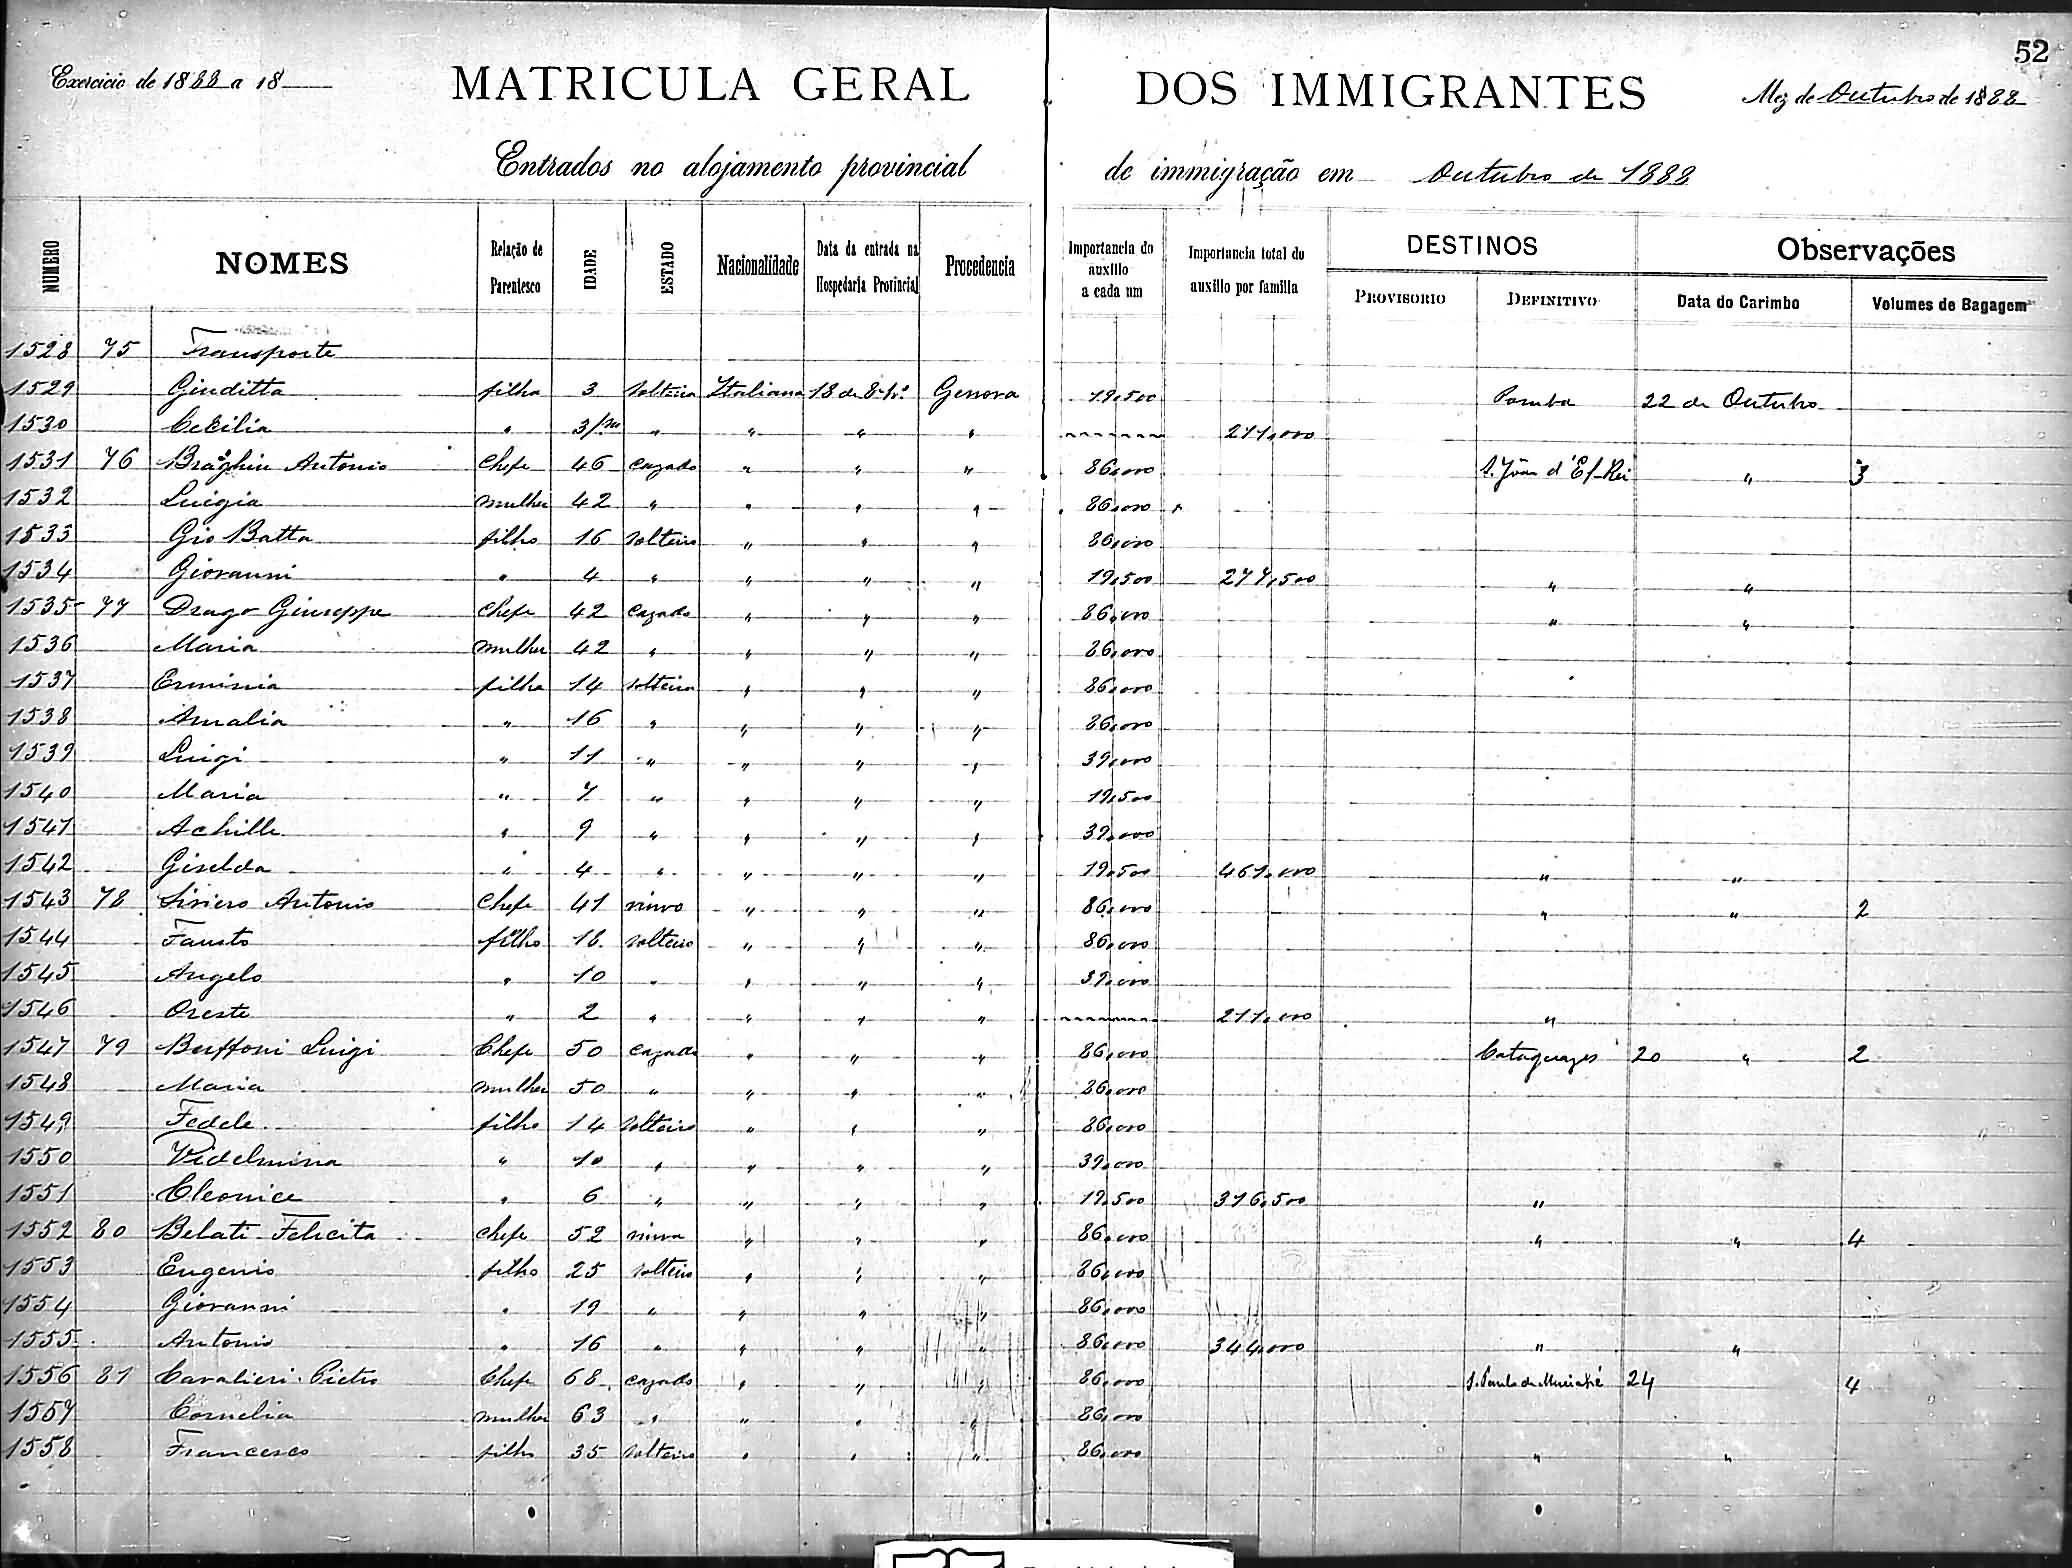 52
Exercicio de 1888 a 18
MATRICULA GERAL DOS IMMIGRANTES
Mez de Outubro de 1888
Entrados no alojamento provincial de immigração em Outubro de 1888
NUMERO NOMES Relação de Parentesco IDADE ESTADO Nacionalidade Data da entrada na Hospedaria Provincial Procedencia Importancia do auxilio a cada um Importancia total do auxilio por familia DESTINOS PROVISORIO DEFINITIVO Observações Data do Carimbo Volumes de Bagagem
1528 75 Transporte
1529 Giuditta filha 3 solteira Italiana 18 de 8br.º Genova 19,500 Pomba 22 de Outubro
1530 Cecilia " 3/m " " " " 211,000
1531 76 Braghin Antonio Chefe 46 cazado " " " 86,000 S. João d'El-Rei " 3
1532 Luigia mulher 42 " " " " 86,000
1533 Gio Batta filho 16 solteiro " " " 86,000
1534 Giovanni " 4 " " " " 19,500 277,500 " "
1535 77 Drago Giuseppe Chefe 42 cazado " " " 86,000 " "
1536 Maria mulher 42 " " " " 86,000
1537 Erminia filha 14 solteira " " " 86,000
1538 Amalia " 16 " " " " 86,000
1539 Luigi " 11 " " " " 39,000
1540 Maria " 7 " " " " 19,500
1541 Achille " 9 " " " " 39,000
1542 Giselda " 4 " " " " 19,500 461,000 " "
1543 78 Siviero Antonio Chefe 41 viuvo " " " 86,000 " " 2
1544 Fausto filho 18 solteiro " " " 86,000
1545 Angelo " 10 " " " " 39,000
1546 Oreste " 2 " " " " 211,000 "
1547 79 Buffoni Luigi Chefe 50 cazado " " " 86,000 Cataguazes 20 " 2
1548 Maria mulher 50 " " " " 86,000
1549 Fedele filho 14 solteiro " " " 86,000
1550 Videlmina " 10 " " " " 39,000
1551 Cleonice " 6 " " " " 19,500 316,500 "
1552 80 Belati Felicita chefe 52 viuva " " " 86,000 " " 4
1553 Eugenio filho 25 solteiro " " " 86,000
1554 Giovanni " 19 " " " " 86,000
1555 Antonio " 16 " " " " 86,000 344,000 " "
1556 81 Cavalieri Pietro Chefe 68 cazado " " " 86,000 S. Paulo de Muriahé 24 4
1557 Cornelia mulher 63 " " " " 86,000
1558 Francesco filho 35 solteiro " " " 86,000 " "